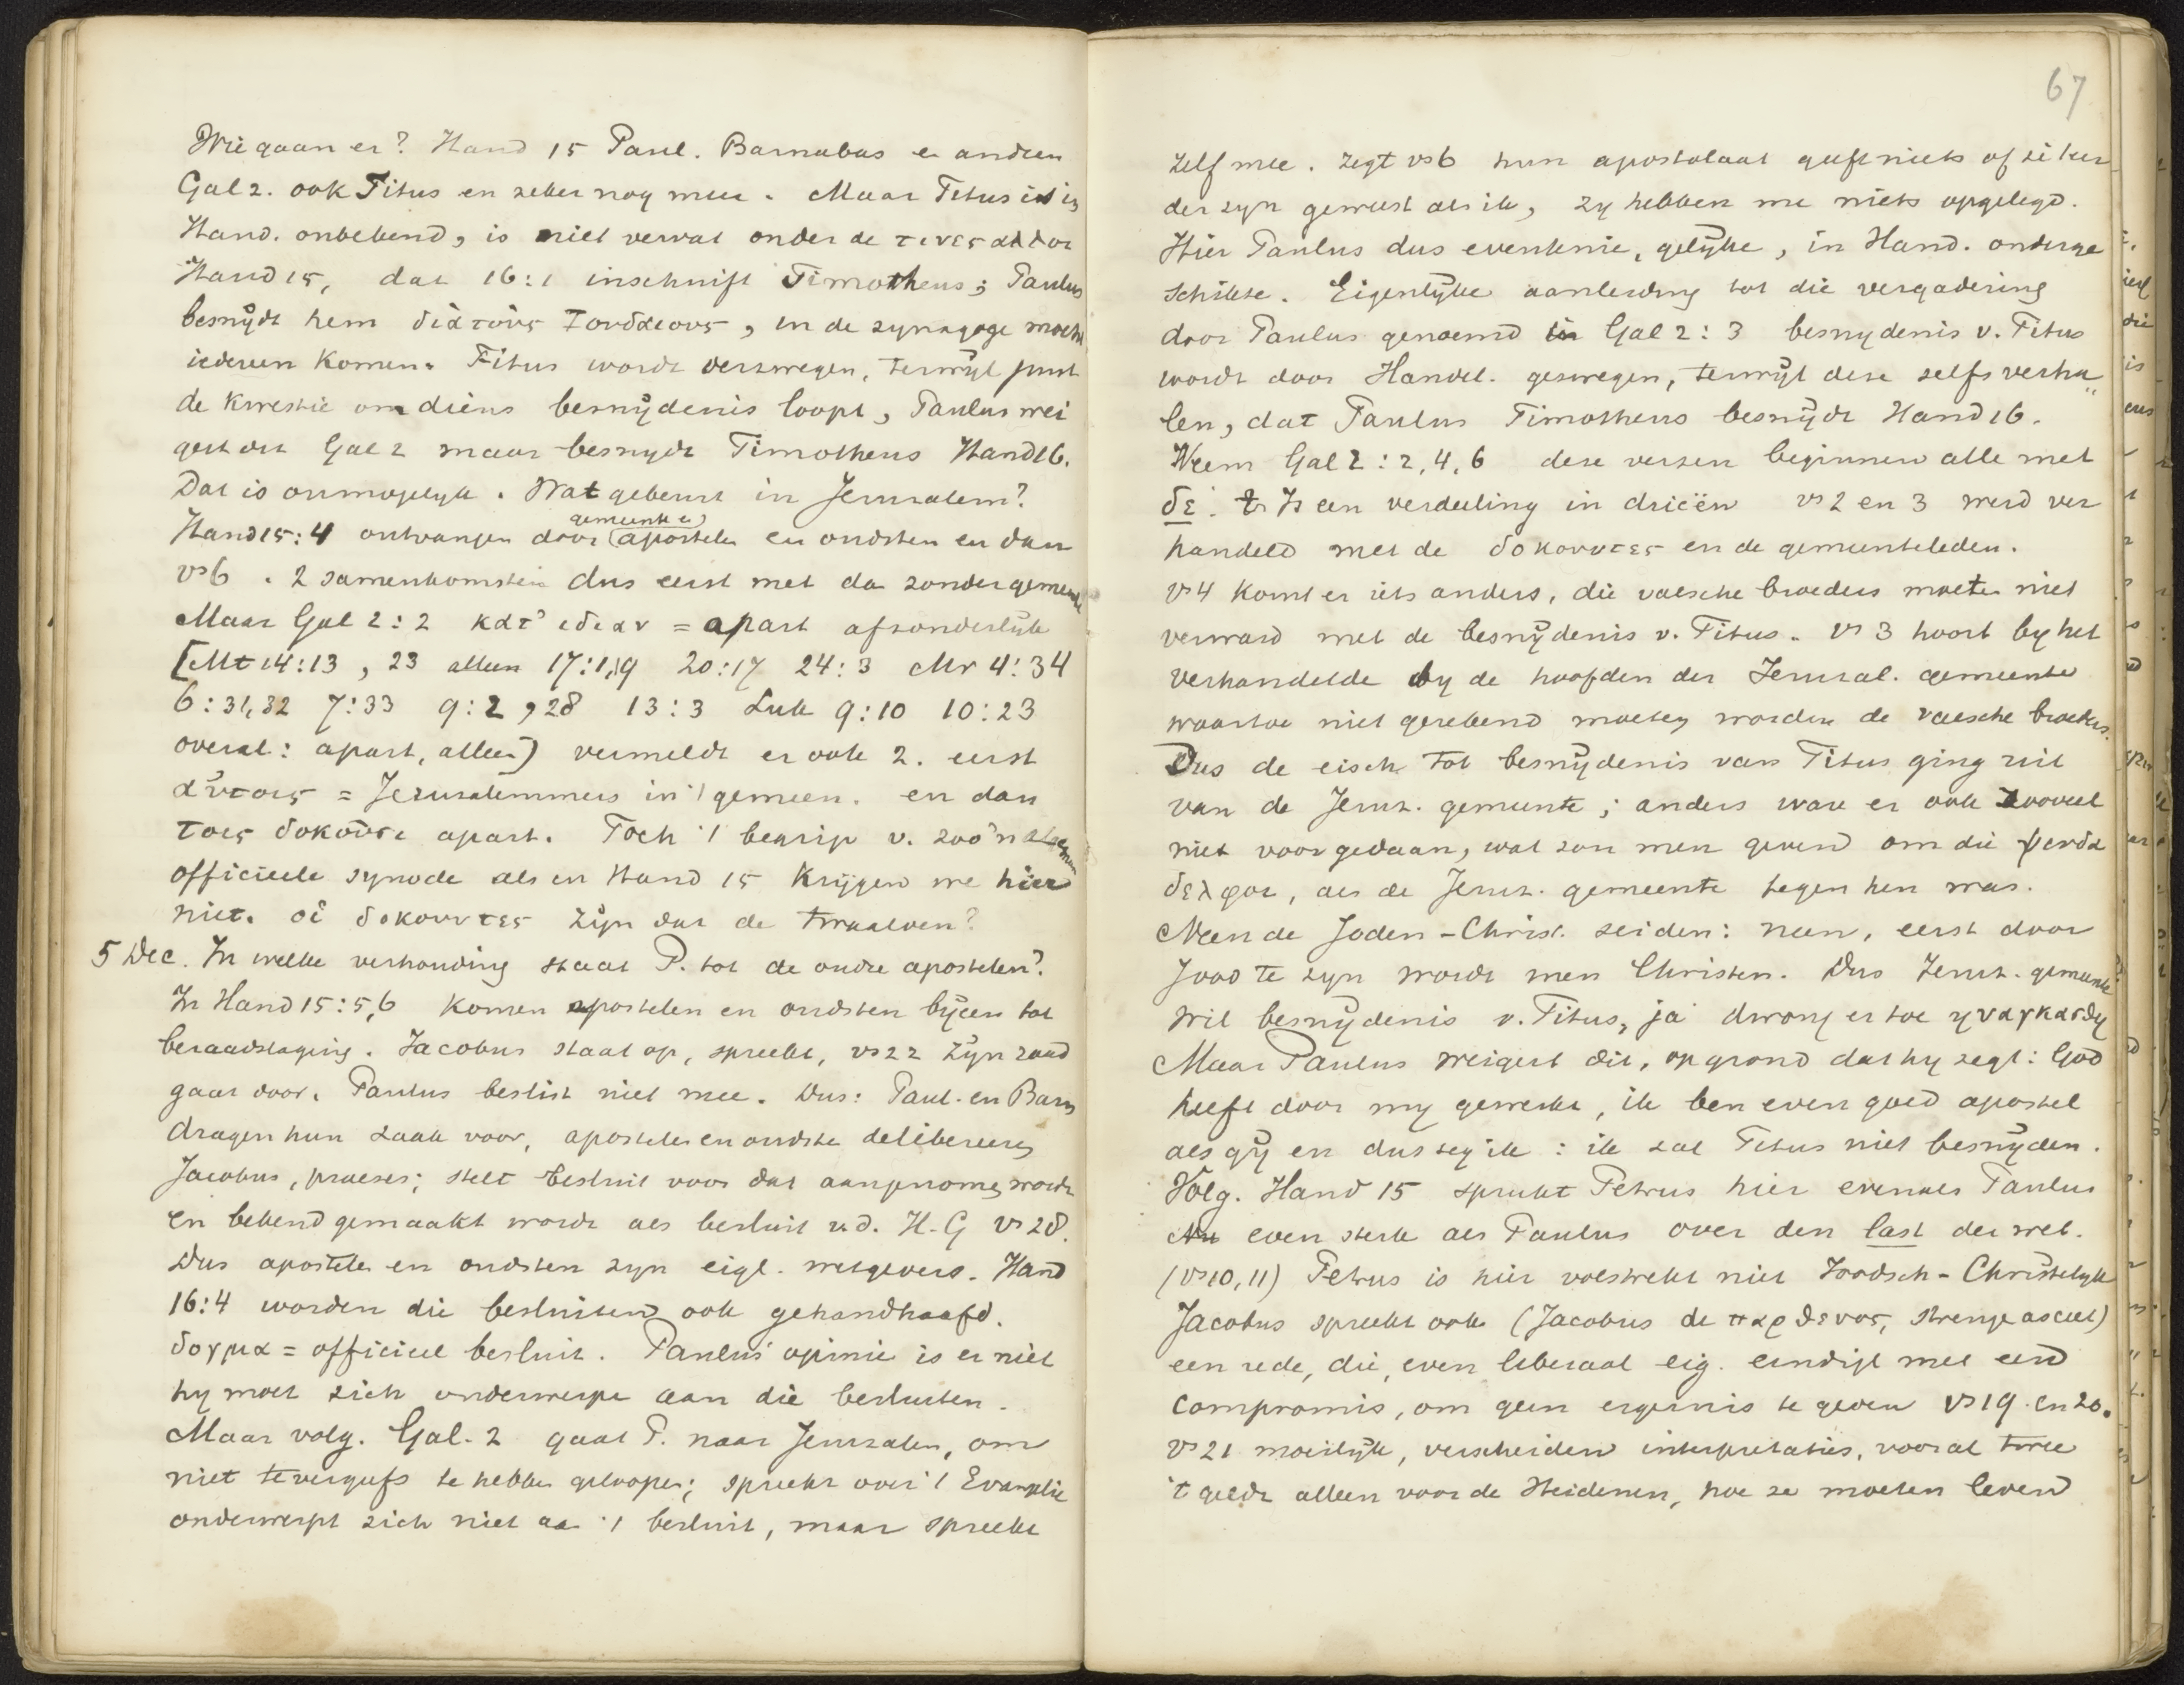 Wie gaan er? Hand 15 Paul. Barnabas en andren
Gal 2. ook Titus en zeker nog meer. Maar Titus is in
Hand. onbekend, is niet vervat onder de τινες αλλοι
Hand 15, dat 16:1 inschuift Timotheus; Paulus
besnÿdt hem διὰ τοὺς Ιουδαιους, in de synagoge mocht
iedereen komen. Titus wordt verzwegen, terwÿl juist
de kwestie om diens besnÿdenis loopt, Paulus wei
gert dit Gal 2 maar besnydt Timotheus Hand 16.
Dat is onmogelyk. Wat gebeurt in Jeruzalem?
gemeente en
Hand 15:4 ontvangen door apostelen en oudsten en dan
vs 6. 2 samenkomsten dus eerst met dan zonder gemeente
Maar Gal 2:2 κατ' ιδιαν = apart afzonderlÿk
[Mt 14:13, 23 alleen 17:1,19 20:17 24:3 Mr 4:34
6:31,32 7:33 9:2, 28 13:3 Luk 9:10 10:23
overal: apart, alleen) vermeldt er ook 2. eerst
αὐτοις = Jeruzalemmers in 't gemeen. en dan
τοις δοκοῦσι apart. Toch 't begrip v. zoo'n
officieele synode als in Hand 15 krijgen we hier
niet. οἱ δοκουντες zÿn dat de twaalven?
5 Dec. In welke verhouding staat P. tot de oudre apostelen?
In Hand 15:5,6 komen apostelen en oudsten bÿeen tot
beraadslaging. Jacobus staat op, spreekt, vs 22 zÿn raad
gaat door. Paulus beslist niet mee. Dus: Paul. en Barn
dragen hun zaak voor, apostelen en oudste delibereeren
Jacobus, praeses; stelt besluit voor dat aangenomen wordt
en bekend gemaakt wordt als besluit v.d. H. G vs 28.
Dus apostelen en oudsten zyn eigl. wetgevers. Hand
16:4 worden die besluiten ook gehandhaafd.
δογμα = officieel besluit. Paulus' opinie is er niet
hy moet zich onderwerpen aan die besluiten.
Maar volg. Gal. 2 gaat P. naar Jeruzalem, om
niet tevergeefs te hebben geloopen; spreekt over 't Evangelie
onderwerpt zich niet aan 't besluit, maar spreekt
67
zelf mee. zegt vs 6 hun apostolaat geeft niets of ze eer
der zyn geweest als ik, zy hebben me niets opgelegd.
Hier Paulus dus evenknie, gelÿke, in Hand. onderge
schikte. Eigenlÿke aanleiding tot die vergadering
door Paulus genoemd in Gal 2:3 besnydenis v. Titus
wordt door Handel. gezwegen, terwÿl deze zelfs verha„
len, dat Paulus Timotheus besnÿdt Hand 16.
Neem Gal 2:2,4,6 deze verzen beginnen alle met
δε. Is een verdeeling in drieën vs 2 en 3 werd ver
handeld met de δοκουντες en de gemeenteleden.
vs 4 komt er iets anders, die valsche broeders moeten niet
verward met de besnÿdenis v. Titus. vs 3 hoort by het
verhandelde by de hoofden der Jeruzal. gemeente
waartoe niet gerekend moeten worden de valsche broeders.
Dus de eisch tot besnÿdenis van Titus ging uit
van de Jeruz. gemeente; anders ware er ook zooveel
niet voor gedaan, wat zou men geven om die ψευδα
δελφοι, als de Jeruz. gemeente tegen hen was.
Neen de Joden-Christ. zeiden: neen, eerst door
Jood te zyn wordt men Christen. Dus Jeruz. gemeente
wil besnÿdenis v. Titus, ja dwong er toe ηναγκασθη
Maar Paulus weigert dit, op grond dat hy zegt: God
heeft door my gewerkt, ik ben even goed apostel
als gÿ en dus zeg ik: ik zal Titus niet besnÿden.
Volg. Hand 15 spreekt Petrus hier evenals Paulus
even sterk als Paulus over den last der wet.
(vs 10, 11) Petrus is hier volstrekt niet Joodsch-Christelyk
Jacobus spreekt ook (Jacobus de παρθενος, strenge asceet)
een rede, die, even liberaal eig. eindigt met een
compromis, om geen ergernis te geven vs 19. en 20.
vs 21 moeilÿk, verscheiden interpretaties, vooral twee
't geldt alleen voor de Heidenen, hoe ze moeten leven